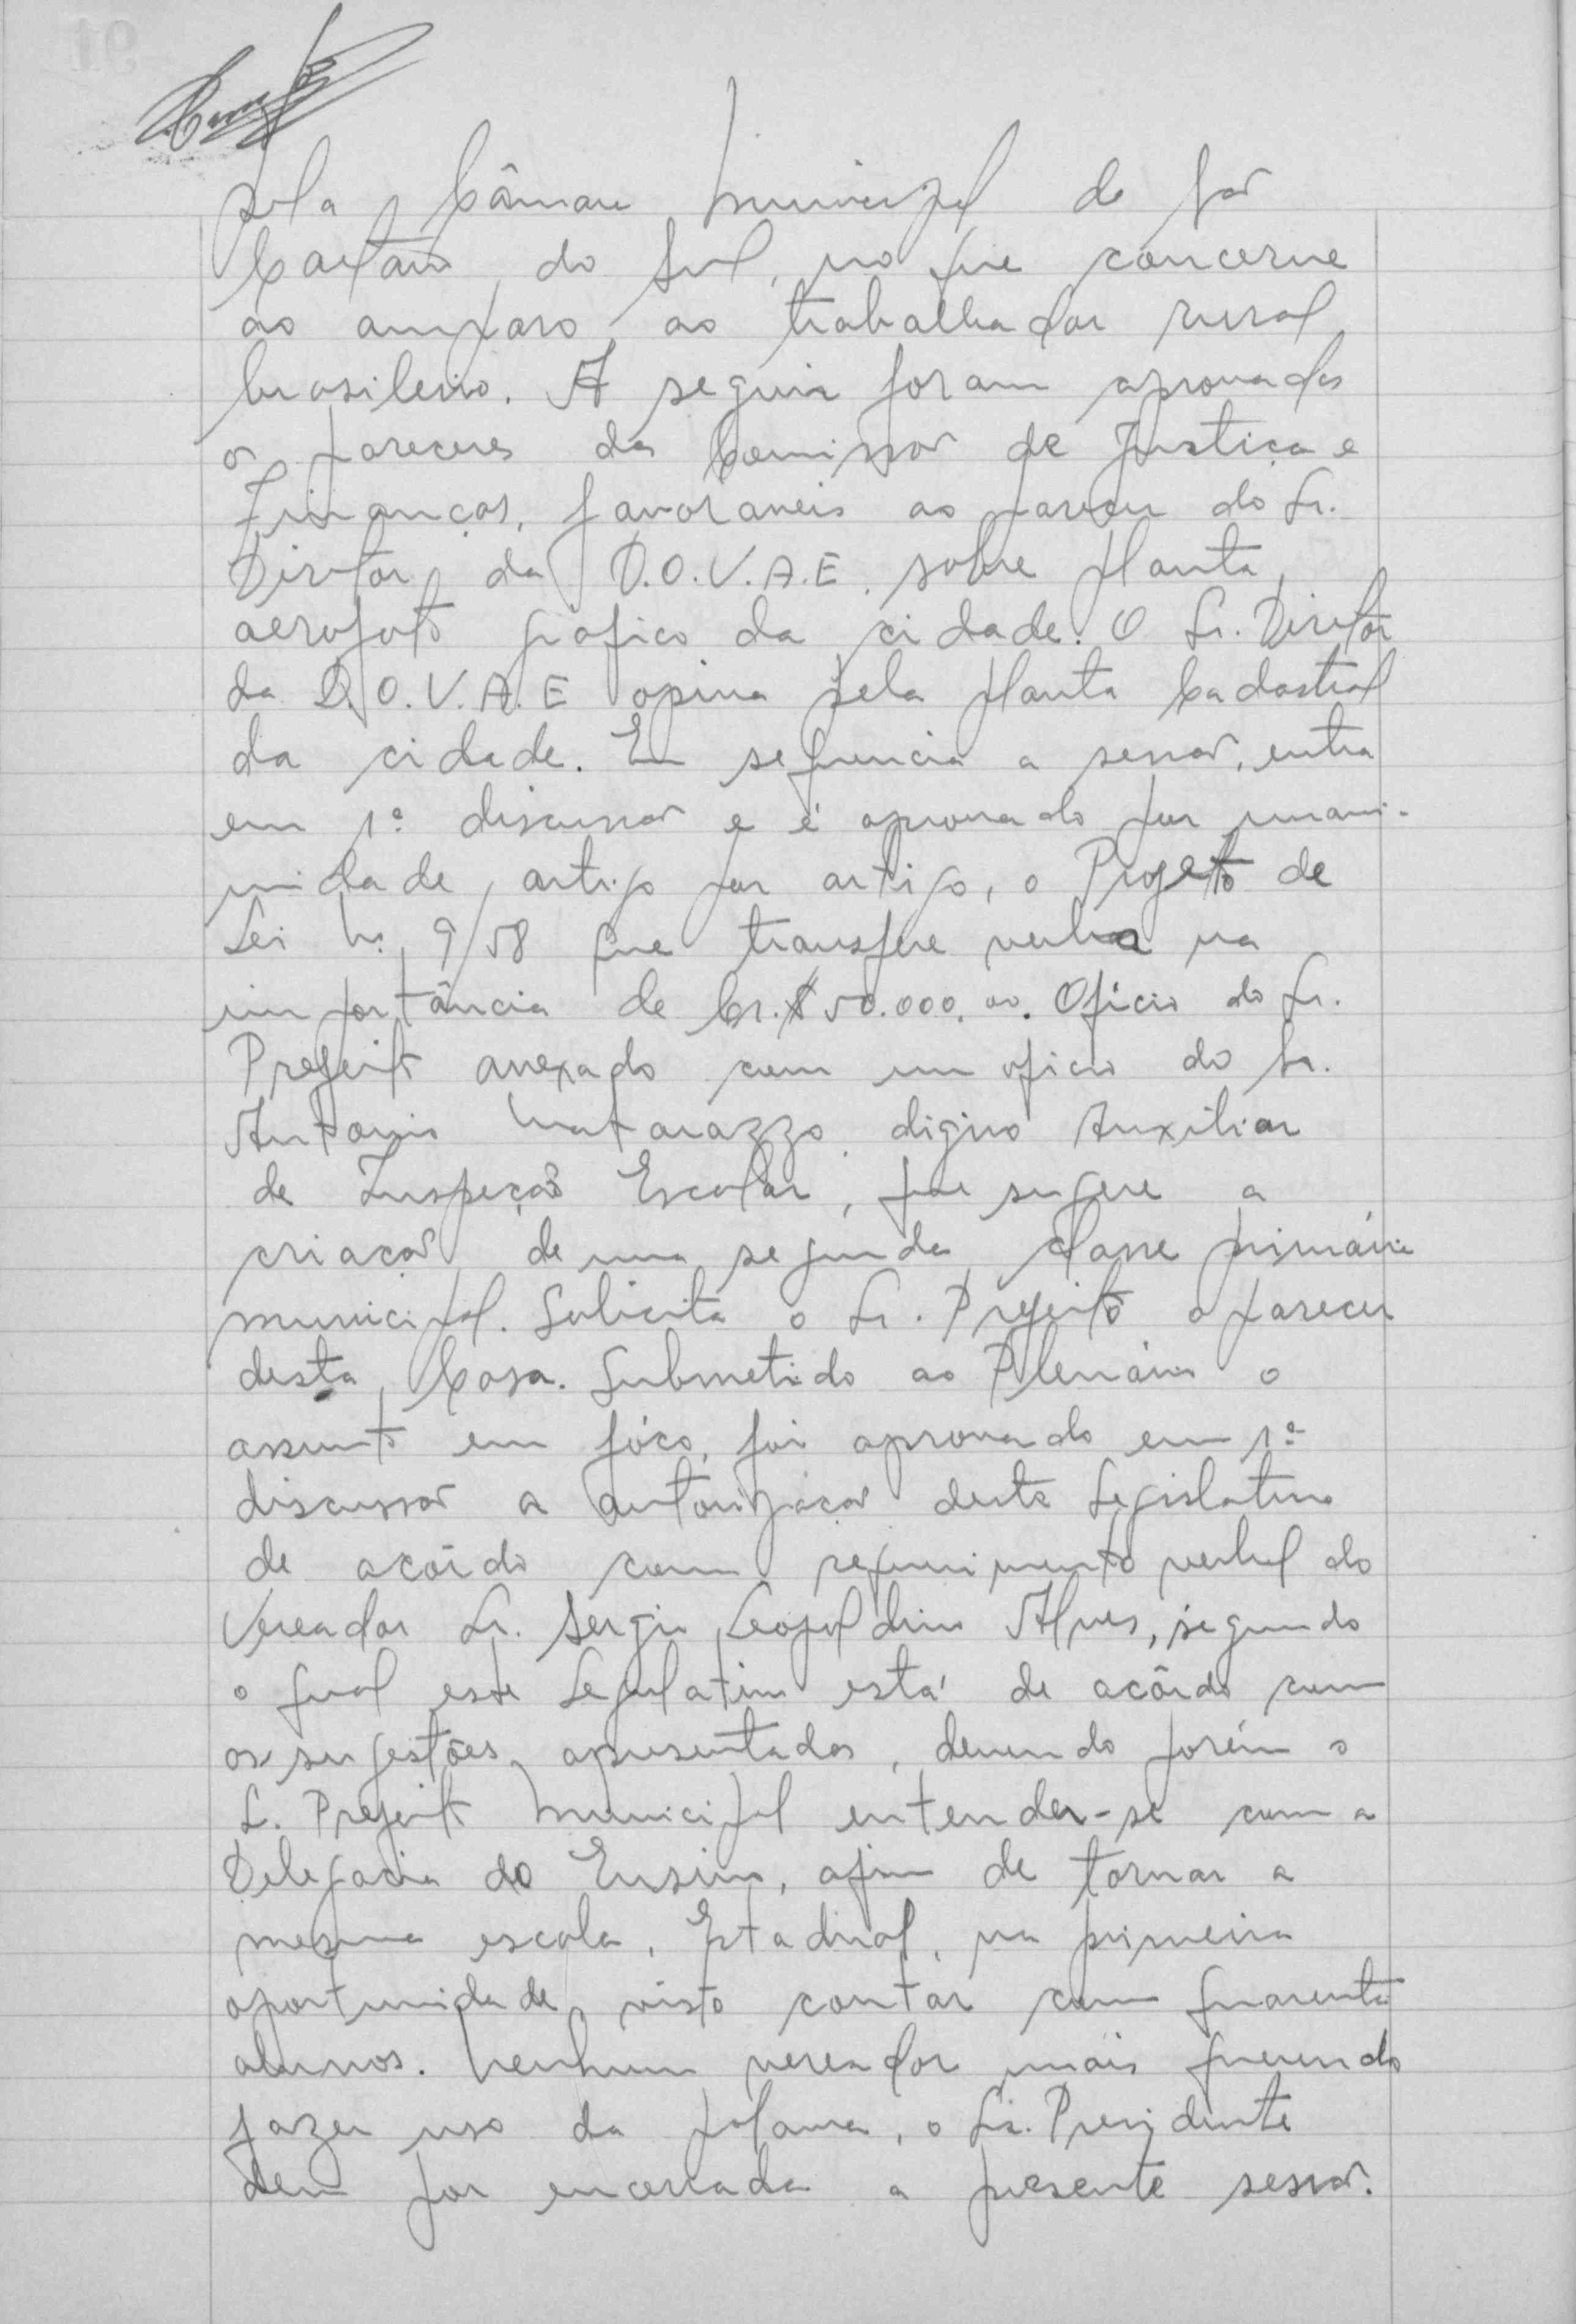 pela Câmara Municipal de São
Caetano do Sul, no que concerne
ao amparo ao trabalhador rural
brasileiro. A seguir foram aprovados
os pareceres das Comissão de Justiça e
Finanças, favoraveis ao parecer do Sr.
Diretor da D.O.V.A.E. sobre planta
aerofoto grafico da cidade. O Sr. Diretor
da D.O.V.A.E opina pela planta Cadastral
da cidade. Em sequencia a sessão, entra
em 1ª discussão e é aprovado por unani-
midade, artigo por artigo, o Projeto de
Lei nº 9/58 que transfere verba na
importância de Cr.$ 50.000,00. Oficio do Sr.
Prefeito anexado com um oficio do Sr.
Antonio Matarazzo, digno Auxiliar
de Inspeção Escolar, que sugere a
criação de uma segunda classe primária
municipal. Solicita o Sr. Prefeito o parecer
desta Casa. Submetido ao Plenário o
assunto em fóco, foi aprovado em 1ª
discussão a autorização deste Legislativo
de acôrdo com requerimento verbal do
Vereador Sr. Sergio Leopoldino Alves, segundo
o qual este Legislativo está de acôrdo com
as sugestões apresentadas, devendo porém o
S. Prefeito Municipal entender-se com a
Delegacia do Ensino, afim de tornar a
mesma escola, Estadual, na primeira
oportunidade, visto contar com quarenta
alunos. Nenhum vereador mais querendo
fazer uso da palavra, o Sr. Presidente
deu por encerrada a presente sessão.